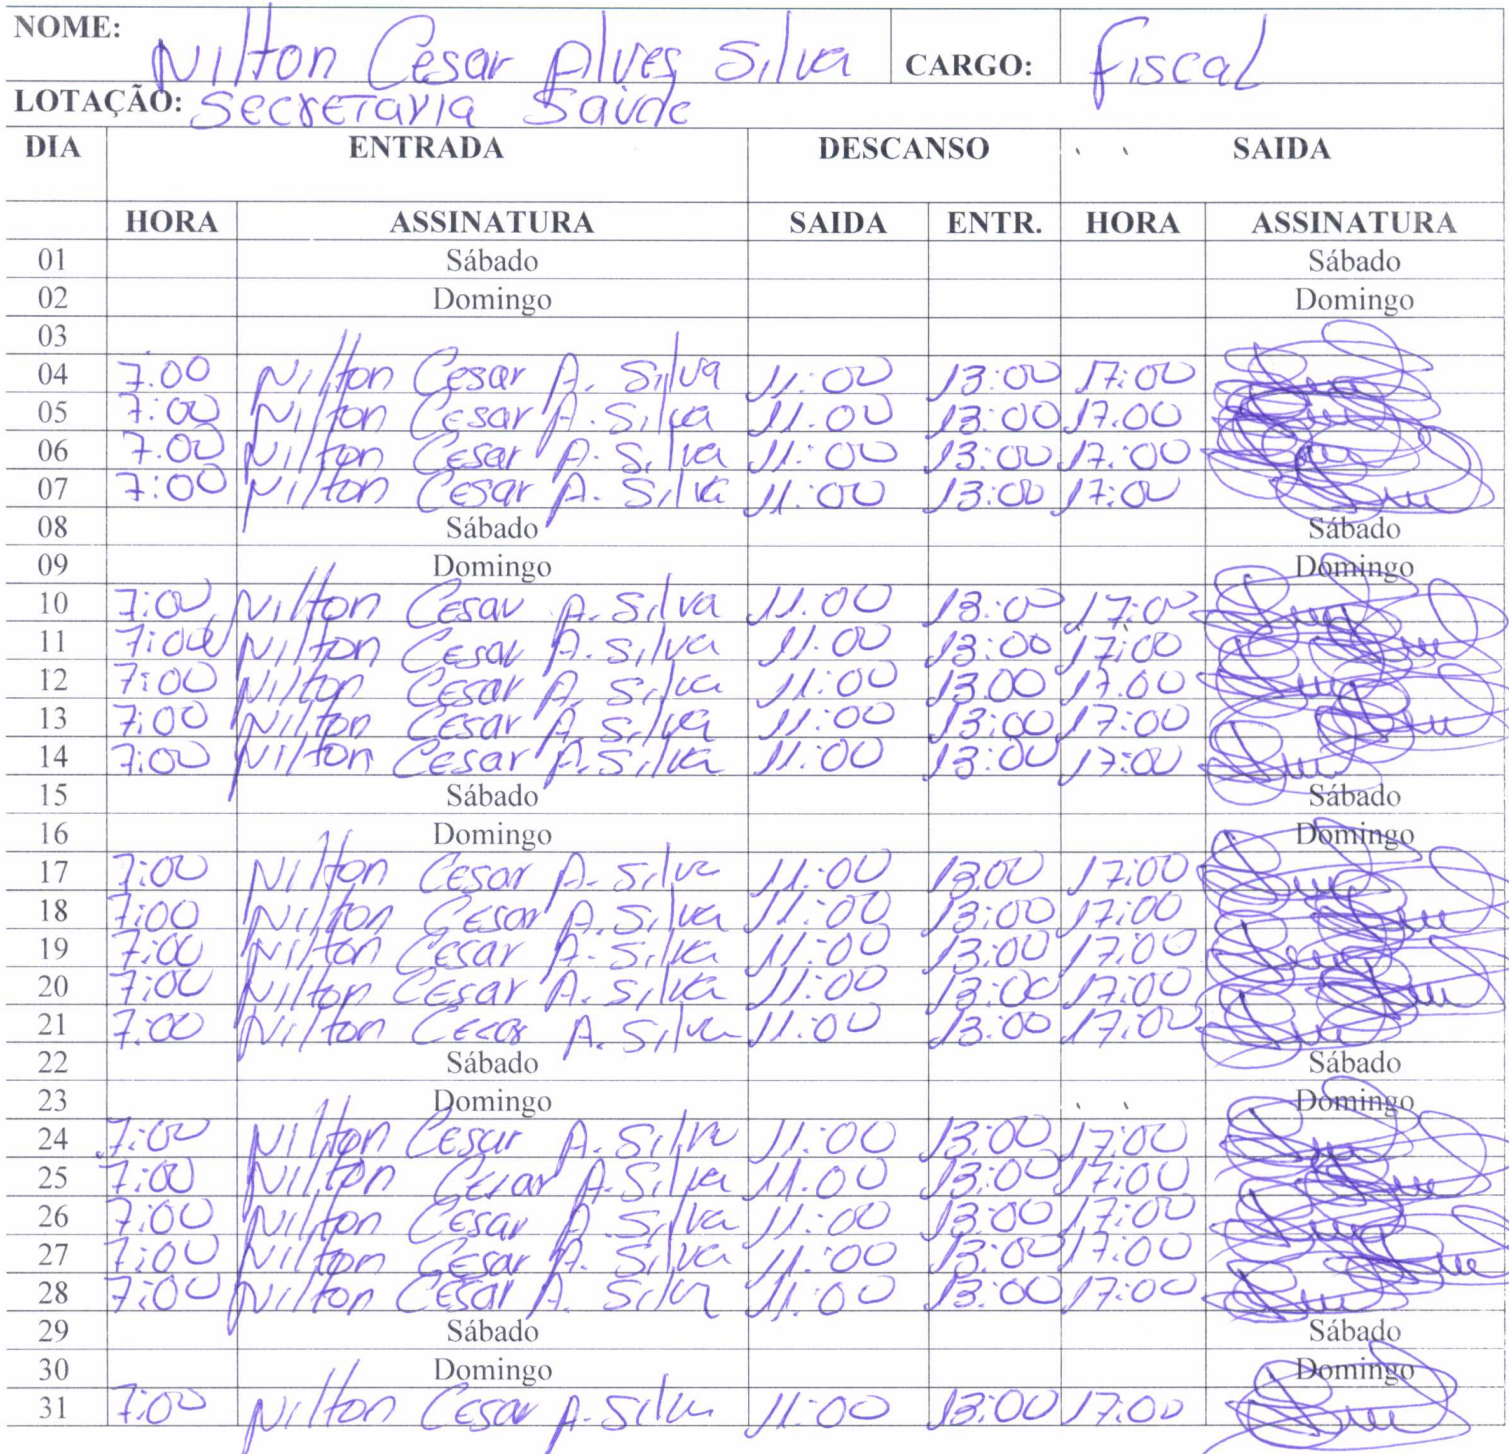 NOME: Nilton Cesar Alves Silva CARGO: Fiscal
LOTAÇÃO: Secretaria Saude
DIA ENTRADA DESCANSO SAIDA
HORA ASSINATURA SAIDA ENTR. HORA ASSINATURA
01 Sábado Sábado
02 Domingo Domingo
03
04 7.00 Nilton Cesar A. Silva 11:00 13:00 17:00
05 7:00 Nilton Cesar A. Silva 11.00 13:00 17.00
06 7.00 Nilton Cesar A. Silva 11:00 13:00 17:00
07 7:00 Nilton Cesar A. Silva 11:00 13:00 17:00
08 Sábado Sábado
09 Domingo Domingo
10 7:00 Nilton Cesar A. Silva 11.00 13:00 17:00
11 7:00 Nilton Cesar A. Silva 11.00 13:00 17:00
12 7:00 Nilton Cesar A. Silva 11:00 13.00 17.00
13 7:00 Nilton Cesar A. Silva 11:00 13:00 17:00
14 7:00 Nilton Cesar A. Silva 11:00 13:00 17:00
15 Sábado Sábado
16 Domingo Domingo
17 7:00 Nilton Cesar A. Silva 11:00 13:00 17:00
18 7:00 Nilton Cesar A. Silva 11:00 13:00 17:00
19 7:00 Nilton Cesar A. Silva 11:00 13:00 17:00
20 7:00 Nilton Cesar A. Silva 11:00 13:00 17:00
21 7:00 Nilton Cesar A. Silva 11:00 13:00 17:00
22 Sábado Sábado
23 Domingo Domingo
24 7:00 Nilton Cesar A. Silva 11:00 13:00 17:00
25 7:00 Nilton Cesar A. Silva 11.00 13:00 17:00
26 7:00 Nilton Cesar A. Silva 11:00 13:00 17:00
27 7:00 Nilton Cesar A. Silva 11:00 13:00 17:00
28 7:00 Nilton Cesar A. Silva 11:00 13:00 17:00
29 Sábado Sábado
30 Domingo Domingo
31 7:00 Nilton Cesar A. Silva 11:00 13:00 17:00